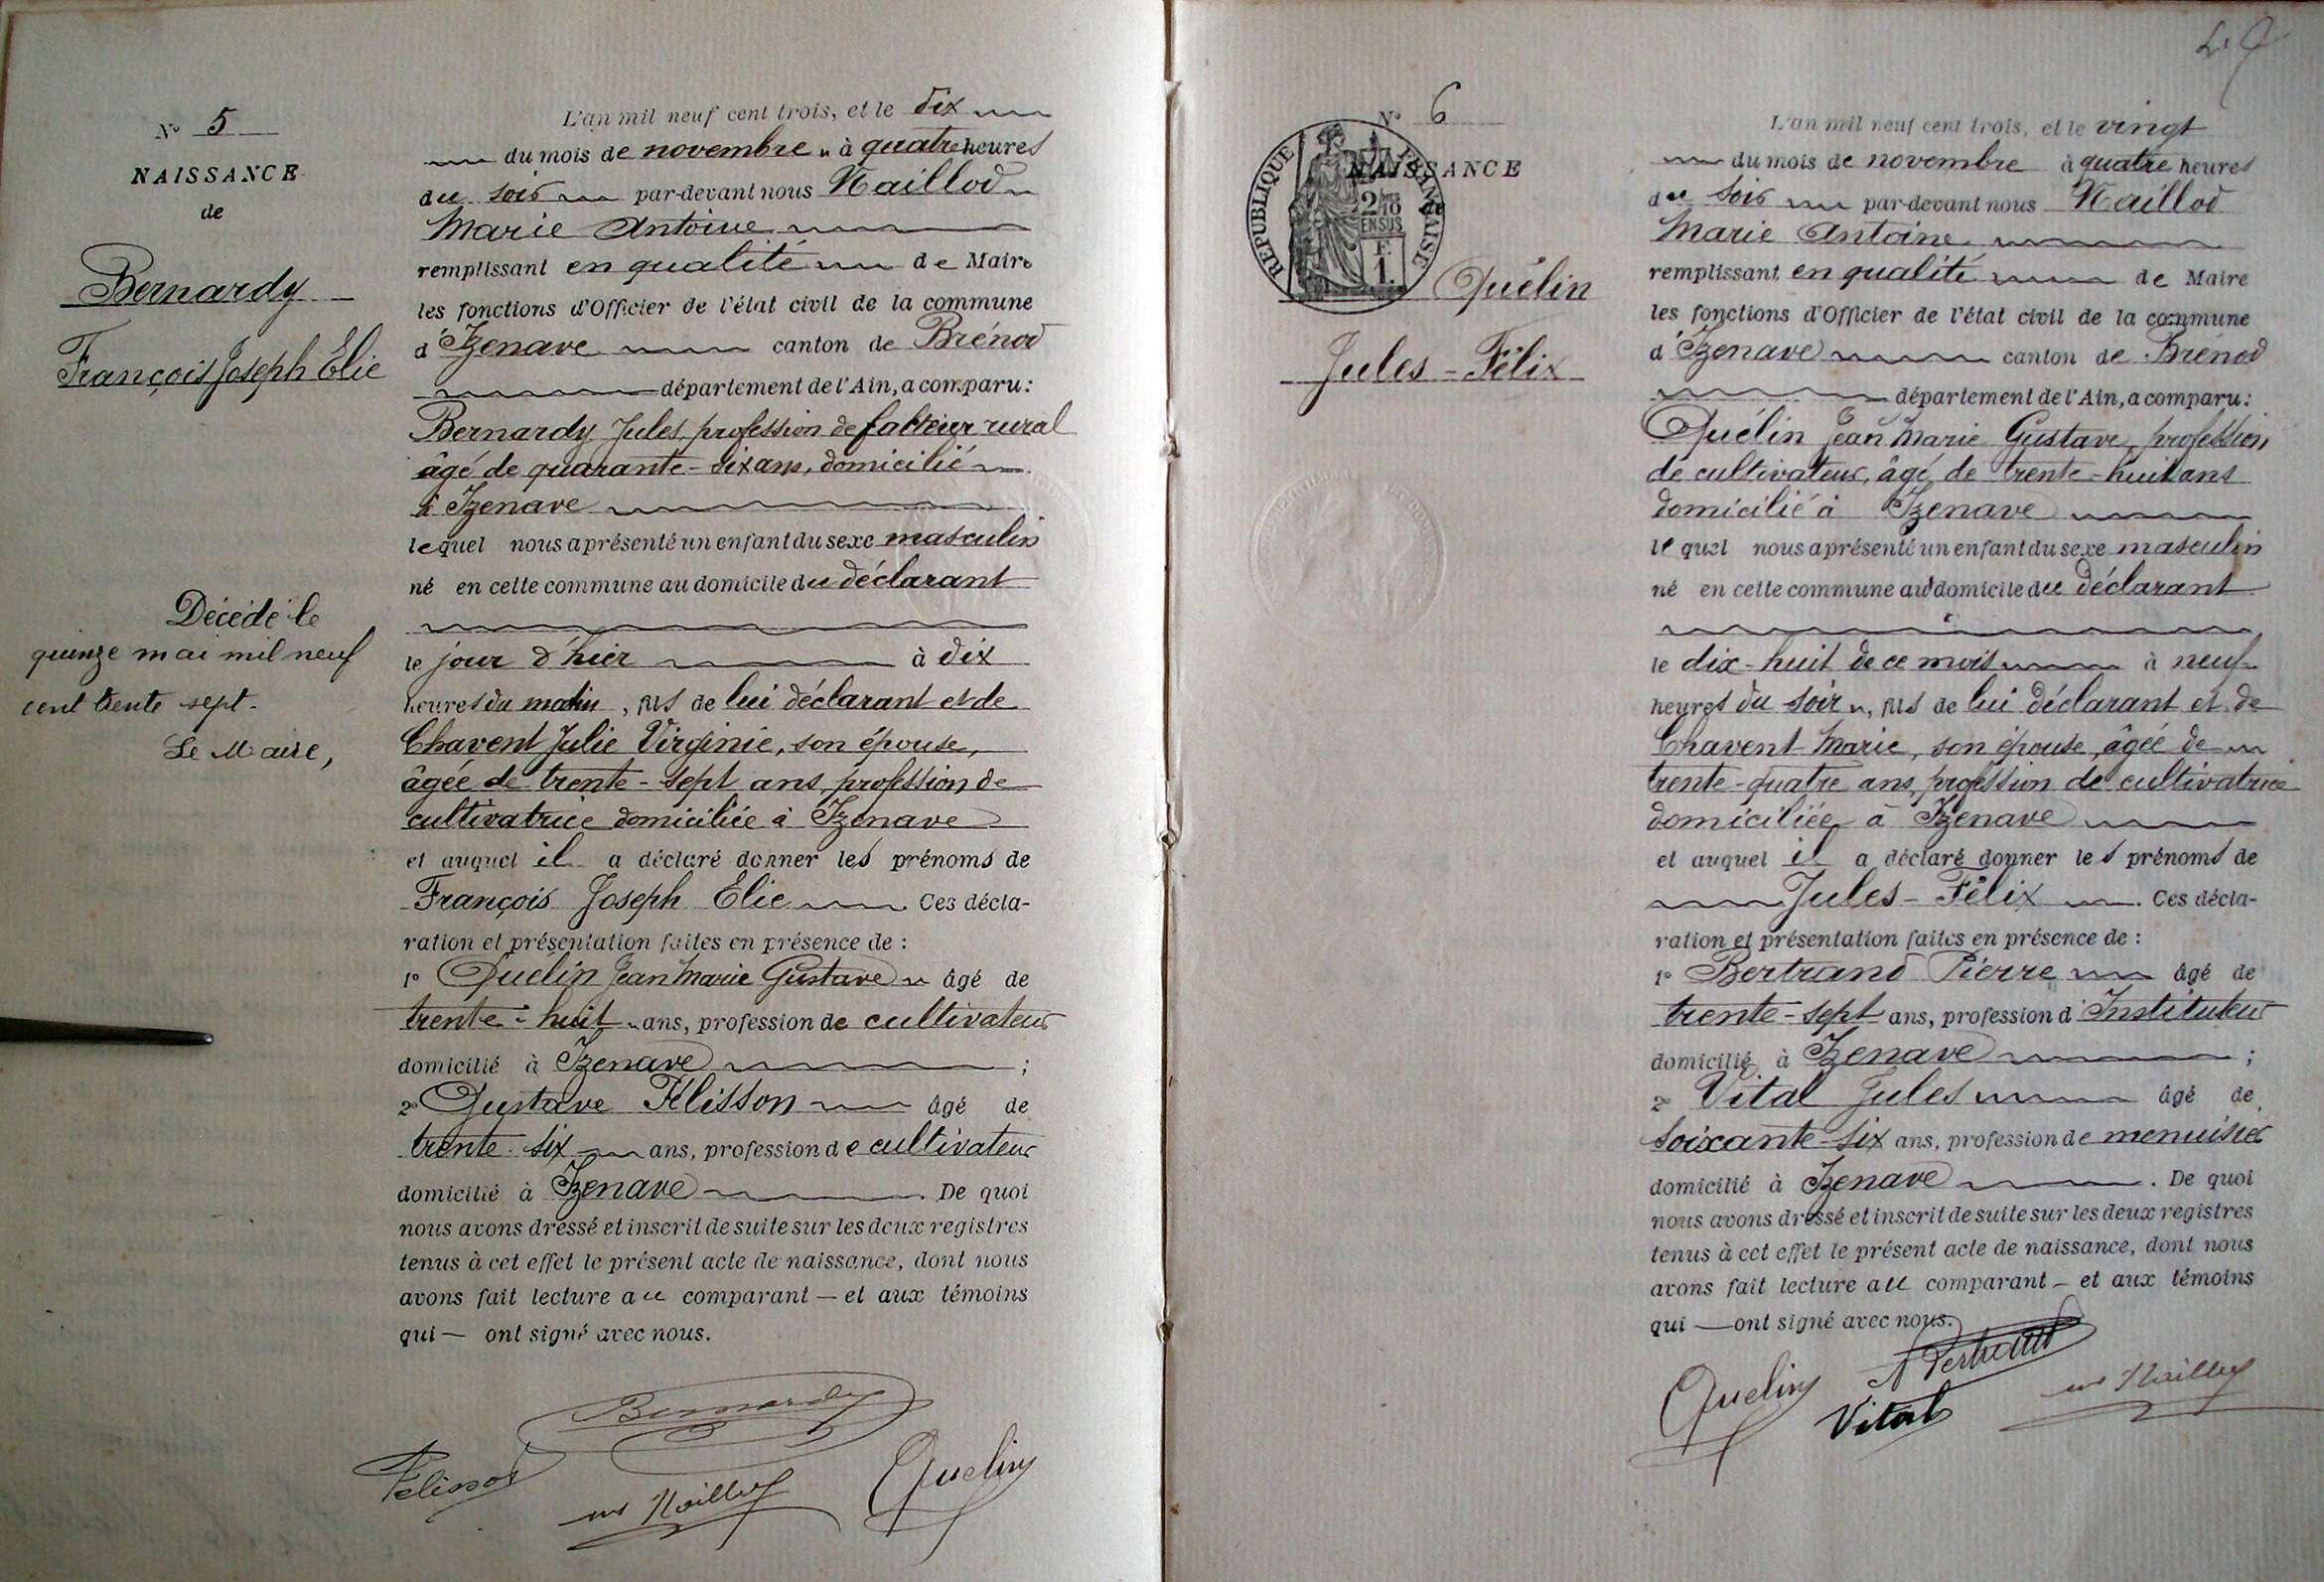 N° 5
NAISSANCE
de
Bernardy
François Joseph Elie
Décédé le
quinze mai mil neuf
cent trente sept.
Le Maire,
L'an mil neuf cent trois, et le dix
du mois de novembre à quatre heures
du soir par-devant nous Naillod
Marie Antoine
remplissant en qualité de Maire
les fonctions d'Officier de l'état civil de la commune
d'Izenave canton de Brénod
département de l'Ain, a comparu :
Bernardy Jules, profession de facteur rural
âgé de quarante-six ans, domicilié
à Izenave
lequel nous a présenté un enfant du sexe masculin
né en cette commune au domicile du déclarant
le jour d'hier à dix
heures du matin, fils de lui déclarant et de
Chavent Julie Virginie, son épouse,
âgée de trente-sept ans, profession de
cultivatrice domiciliée à Izenave
et auquel il a déclaré donner les prénoms de
François Joseph Elie Ces décla-
ration et présentation faites en présence de :
1° Quélin Jean Marie Gustave âgé de
trente-huit ans, profession de cultivateur
domicilié à Izenave ;
2° Gustave Pélisson âgé de
trente-six ans, profession de cultivateur
domicilié à Izenave. De quoi
nous avons dressé et inscrit de suite sur les deux registres
tenus à cet effet le présent acte de naissance, dont nous
avons fait lecture au comparant — et aux témoins
qui — ont signé avec nous.
Bernardy
Pelisson Naillod Quelin
N° 6
NAISSANCE
de
REPUBLIQUE FRANÇAISE
2/10
EN SUS
F.
1.
Quélin
Jules-Félix
L'an mil neuf cent trois, et le vingt
du mois de novembre à quatre heures
du soir par-devant nous Naillod
Marie Antoine
remplissant en qualité de Maire
les fonctions d'Officier de l'état civil de la commune
d'Izenave canton de Brénod
département de l'Ain, a comparu :
Quélin Jean Marie Gustave, profession
de cultivateur, âgé de trente-huit ans
domicilié à Izenave
lequel nous a présenté un enfant du sexe masculin
né en cette commune au domicile du déclarant
le dix-huit de ce mois à neuf
heures du soir, fils de lui déclarant et de
Chavent Marie, son épouse, âgée de
trente-quatre ans, profession de cultivatrice
domiciliée à Izenave
et auquel il a déclaré donner les prénoms de
Jules-Félix. Ces décla-
ration et présentation faites en présence de :
1° Bertrand Pierre âgé de
trente-sept ans, profession d'Instituteur
domicilié à Izenave ;
2° Vital Jules âgé de
soixante-six ans, profession de menuisier
domicilié à Izenave. De quoi
nous avons dressé et inscrit de suite sur les deux registres
tenus à cet effet le présent acte de naissance, dont nous
avons fait lecture au comparant — et aux témoins
qui — ont signé avec nous.
Quelin Bertrand
Vital Naillod